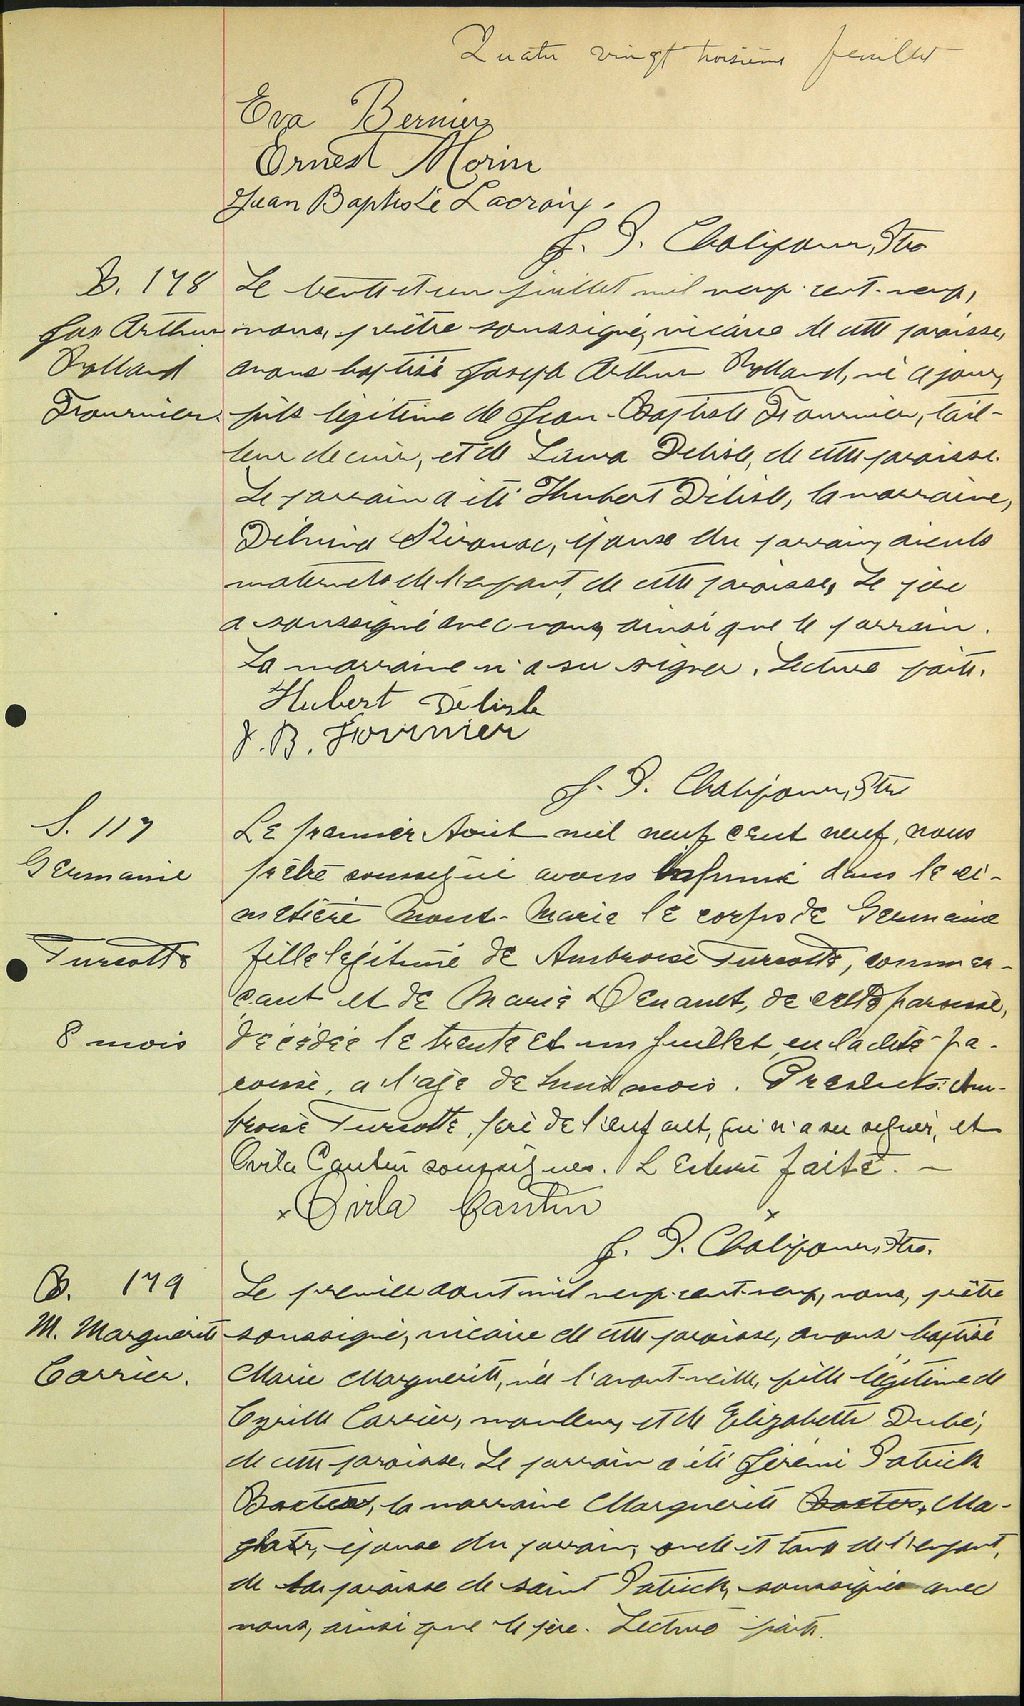 Quatre vingt troisième feuillet
Eva Bernier
Ernest Morin
Jean Baptiste Lacroix.
J. P. Chalifour, Ptre
B. 178
Jos Arthur
Rolland
Fournier.
Le trente et un juillet mil neuf-cent-neuf,
nous, prêtre soussigné, vicaire de cette paroisse,
avons baptisé Joseph Arthur Rolland, né ce jour,
fils légitime de Jean-Baptiste Fournier, tail-
leur de cuir, et de Laura Delisle, de cette paroisse.
Le parrain a été Hubert Délisle, la marraine,
Délvina Kirouac, épouse du parrain, aïeuls
maternels de l'enfant, de cette paroisse, Le père
a soussigné avec nous, ainsi que le parrain.
La marraine n'a su signer. Lecture faite.
Hubert Délisle
J. B. Fournier
J. P. Chalifour, Ptre
S. 117
Germaine
Turcotte
8 mois
Le premier Août mil neuf cent neuf, nous
prêtre soussigné avons inhumé dans le ci-
metière Mont-Marie le corps de Germaine
fille légitime de Ambroise Turcotte, commer-
çant et de Marie Denault, de cette paroisse,
décédée le trente et un juillet, en la dite pa-
roisse, a l'age de huit mois. Présents: Am-
broise Turcotte, père de l'enfant, qui n'a su signer, et
Ovila Cantin soussignés. Lecture faite. –
x Ovila Cantin x
J. P. Chalifour, Ptre.
B. 179
M. Marguerite
Carrier.
Le premier août mil neuf-cent-neuf, nous, prêtre
soussigné, vicaire de cette paroisse, avons baptisé
Marie Marguerite, née l'avant-veille, fille légitime de
Cyrille Carrier, mouleur, et de Elizabeth Dubé,
de cette paroisse. Le parrain a été Jérémi Patrick
Baxter, la marraine Marguerite Baxter, Ma-
épouse du parrain, oncle et tante de l'enfant,
de la paroisse de saint Patrick, soussignés avec
nous, ainsi que le père. Lecture faite.